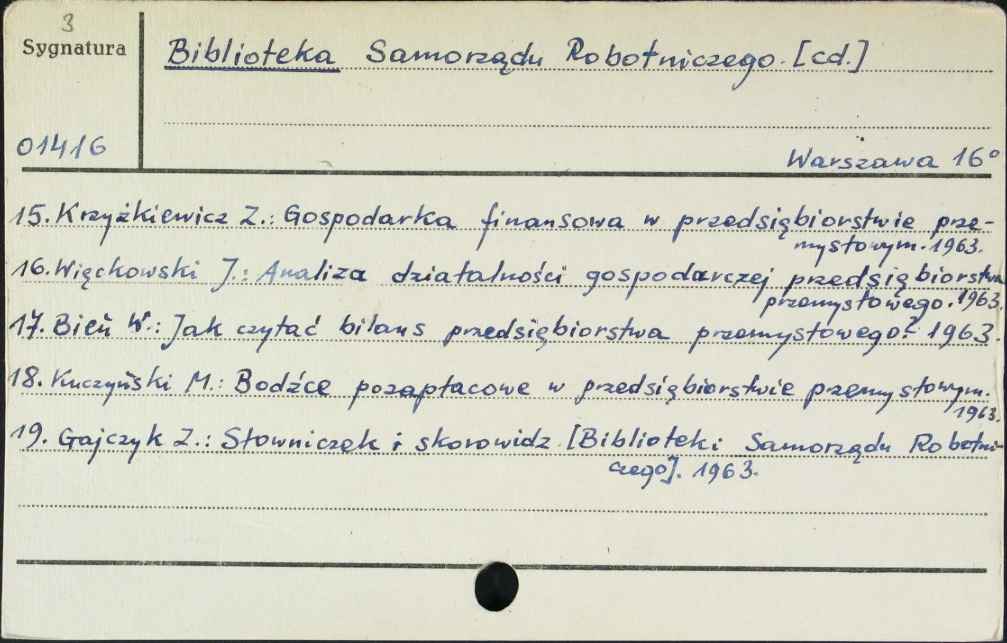 3
Sygnatura
Biblioteka Samorządu Robotniczego. [cd.]
01416
Warszawa 16°
15. Krzyżkiewicz Z.: Gospodarka finansowa w przedsiębiorstwie prze-
mysłowym. 1963.
16. Więckowski J.: Analiza działalności gospodarczej przedsiębiorstwa
przemysłowego. 1963.
17. Bień W.: Jak czytać bilans przedsiębiorstwa przemysłowego? 1963.
18. Kuczyński M.: Bodźce pozapłacowe w przedsiębiorstwie przemysłowym.
1963.
19. Gajczyk Z.: Słowniczek i skorowidz [Biblioteki Samorządu Robotni-
czego]. 1963.